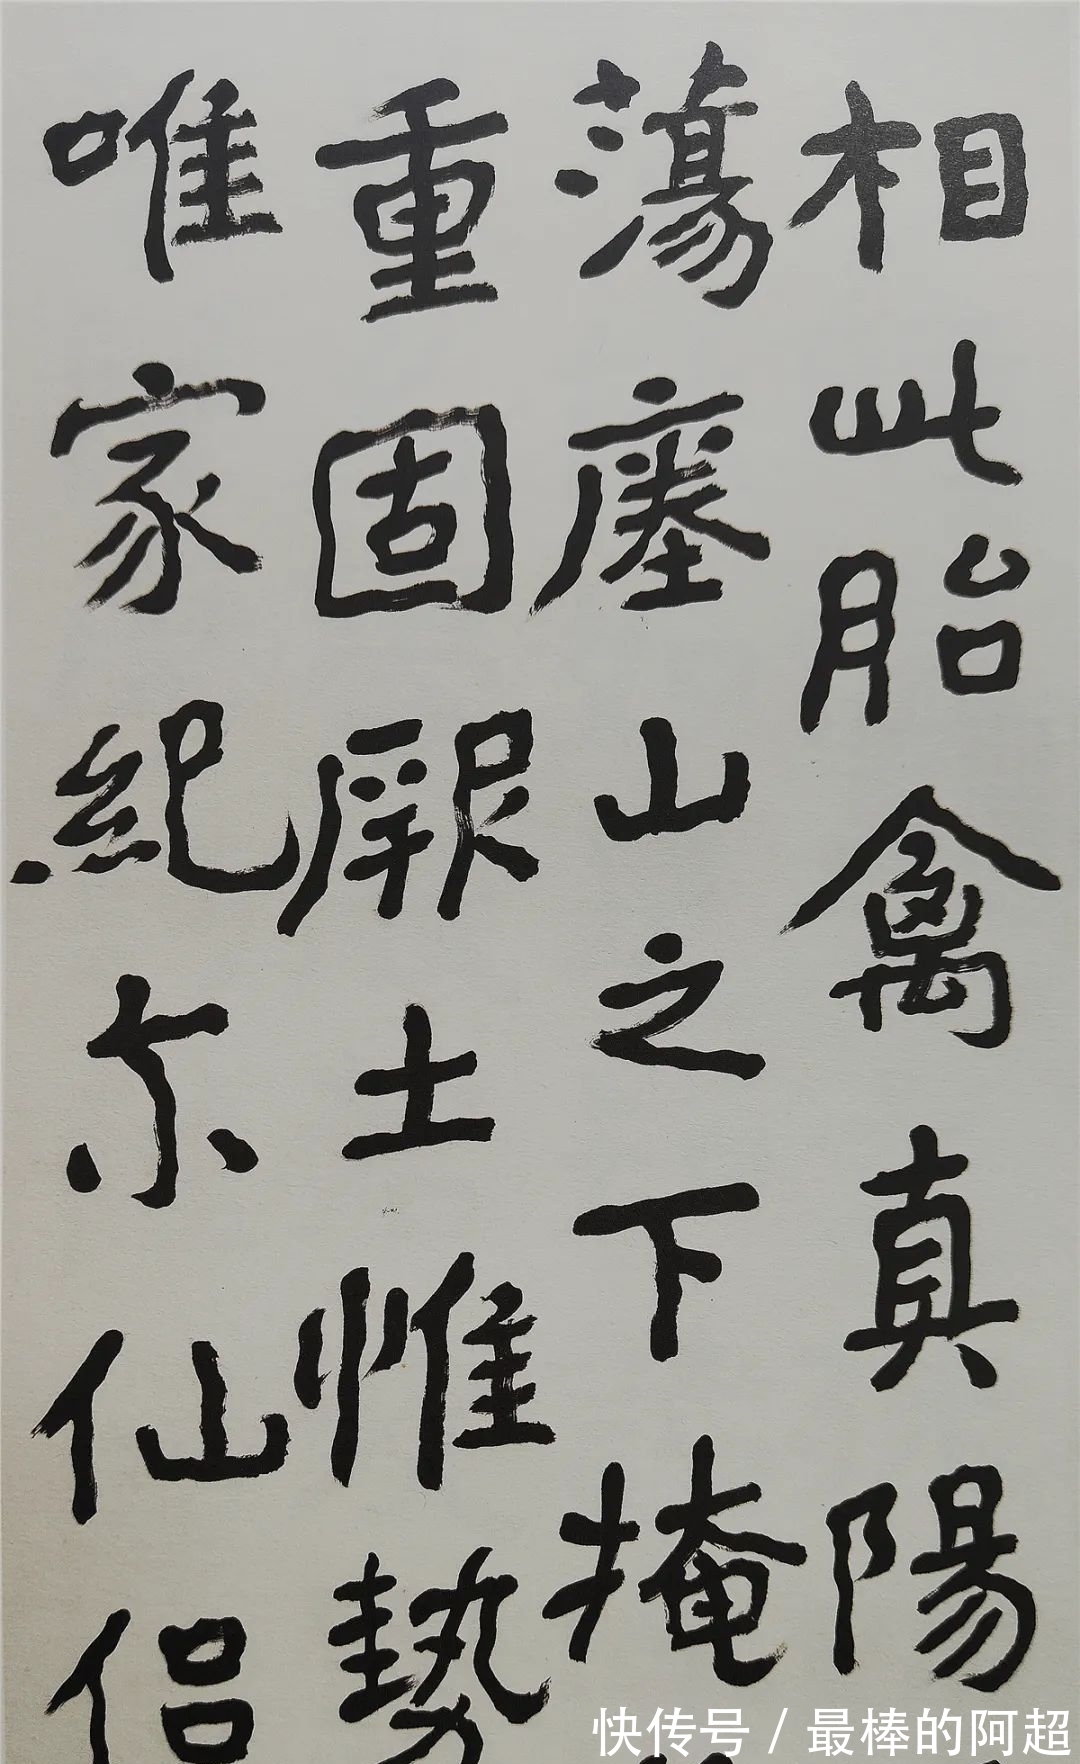 相此胎禽真陽
蕩瘞山之下掩
重固厥土惟勢
唯家紀尔仙侣
快传号 / 最棒的阿超